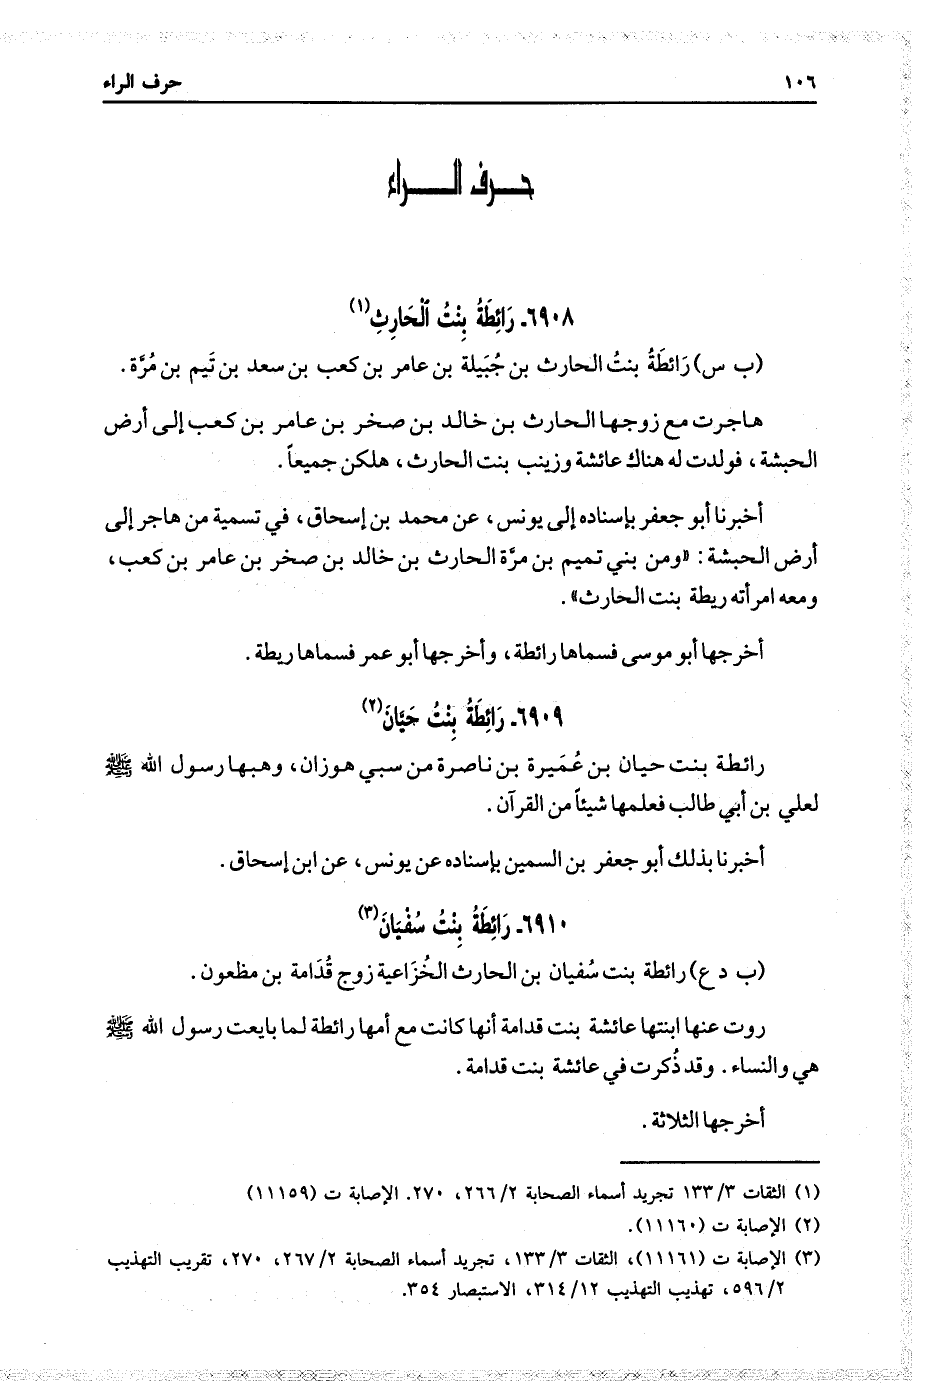 ١٠٦ حرف الراء
حرف الراء
٦٩٠٨ـ رَائِطَةُ بِنْتُ ٱلْحَارِثِ(١)
(ب س) رَائطَةُ بنتُ الحارث بن جُبَيلة بن عامر بن كعب بن سعد بن تَيم بن مُرَّة.
هاجرت مع زوجها الحارث بن خالد بن صخر بن عامر بن كعب إلى أرض
الحبشة، فولدت له هناك عائشة وزينب بنت الحارث، هلكن جميعاً.
أخبرنا أبو جعفر بإسناده إلى يونس، عن محمد بن إسحاق، في تسمية من هاجر إلى
أرض الحبشة: «ومن بني تميم بن مرَّة الحارث بن خالد بن صخر بن عامر بن كعب،
ومعه امرأته ريطة بنت الحارث».
أخرجها أبو موسى فسماها رائطة، وأخرجها أبو عمر فسماها ريطة.
٦٩٠٩ـ رَائِطَةُ بِنْتُ حَيَّانَ(٢)
رائطة بنت حيان بن عُمَيرة بن ناصرة من سبي هوزان، وهبها رسول الله ﷺ
لعلي بن أبي طالب فعلمها شيئاً من القرآن.
أخبرنا بذلك أبو جعفر بن السمين بإسناده عن يونس، عن ابن إسحاق.
٦٩١٠ـ رَائِطَةُ بِنْتُ سُفْيَانَ(٣)
(ب د ع) رائطة بنت سُفيان بن الحارث الخُزَاعية زوج قُدَامة بن مظعون.
روت عنها ابنتها عائشة بنت قدامة أنها كانت مع أمها رائطة لما بايعت رسول الله ﷺ
هي والنساء. وقد ذُكرت في عائشة بنت قدامة.
أخرجها الثلاثة.
(١) الثقات ٣/ ١٣٣ تجريد أسماء الصحابة ٢/ ٢٦٦، ٢٧٠. الإصابة ت (١١١٥٩)
(٢) الإصابة ت (١١١٦٠).
(٣) الإصابة ت (١١١٦١)، الثقات ٣/ ١٣٣، تجريد أسماء الصحابة ٢/ ٢٦٧، ٢٧٠، تقريب التهذيب
٢/ ٥٩٦، تهذيب التهذيب ١٢/ ٣١٤، الاستبصار ٣٥٤.